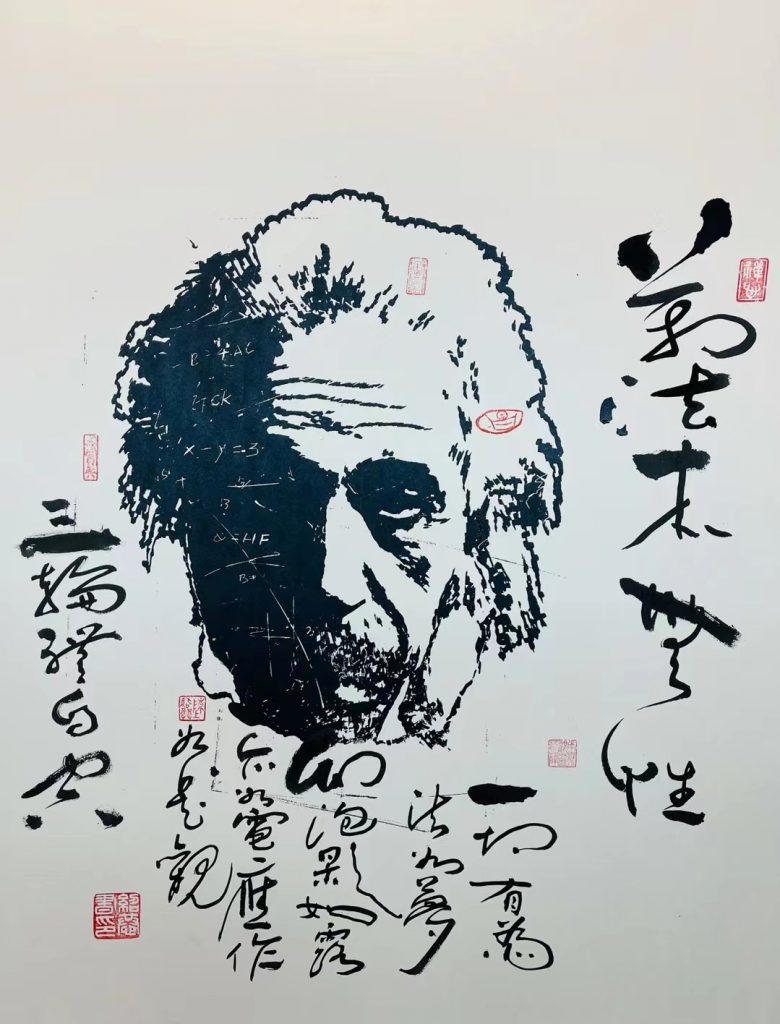 萬法本無性
一切有為
法如夢
幻泡影如露
亦如電應作
如是觀
三輪體自空
x-y=3